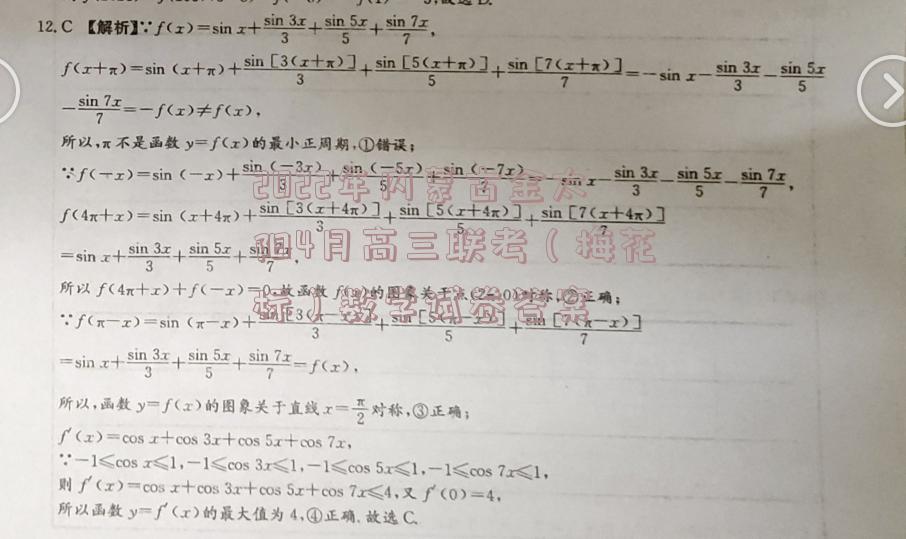 12. C 【解析】∵f(x)=sin x+\frac{sin 3x}{3}+\frac{sin 5x}{5}+\frac{sin 7x}{7},
f(x+π)=sin (x+π)+\frac{sin [3(x+π)]}{3}+\frac{sin [5(x+π)]}{5}+\frac{sin [7(x+π)]}{7}=-sin x-\frac{sin 3x}{3}-\frac{sin 5x}{5}
-\frac{sin 7x}{7}=-f(x)≠f(x),
所以,π不是函数 y=f(x)的最小正周期,①错误;
∵f(-x)=sin (-x)+\frac{sin (-3x)}{3}+\frac{sin (-5x)}{5}+\frac{sin (-7x)}{7}=-sin x-\frac{sin 3x}{3}-\frac{sin 5x}{5}-\frac{sin 7x}{7},
f(4π+x)=sin (x+4π)+\frac{sin [3(x+4π)]}{3}+\frac{sin [5(x+4π)]}{5}+\frac{sin [7(x+4π)]}{7}
=sin x+\frac{sin 3x}{3}+\frac{sin 5x}{5}+\frac{sin 7x}{7},
所以 f(4π+x)+f(-x)=0,故函数 f(x)的图象关于点(2π,0)对称,②正确;
∵f(π-x)=sin (π-x)+\frac{sin [3(π-x)]}{3}+\frac{sin [5(π-x)]}{5}+\frac{sin [7(π-x)]}{7}
=sin x+\frac{sin 3x}{3}+\frac{sin 5x}{5}+\frac{sin 7x}{7}=f(x),
所以,函数 y=f(x)的图象关于直线 x=\frac{π}{2}对称,③正确;
f′(x)=cos x+cos 3x+cos 5x+cos 7x,
∵-1≤cos x≤1,-1≤cos 3x≤1,-1≤cos 5x≤1,-1≤cos 7x≤1,
则 f′(x)=cos x+cos 3x+cos 5x+cos 7x≤4,又 f′(0)=4,
所以函数 y=f′(x)的最大值为 4,④正确.故选 C.
2022年内蒙古金太
阳4月高三联考(梅花
标)数学试卷答案